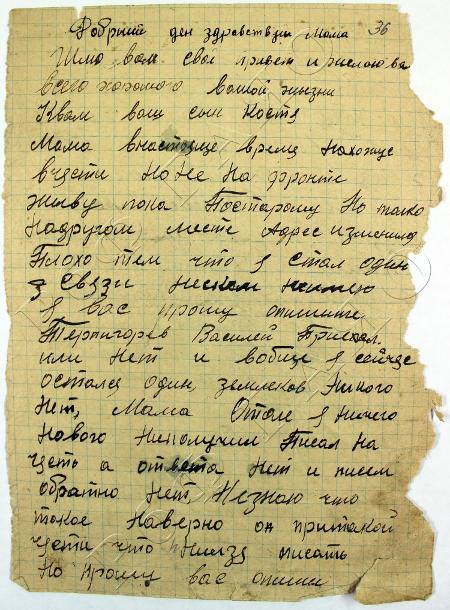 36
Добрый ден здравствуй Мама
Шлю вам свой привет и
всего хорошого вашой жызни
К вам ваш сын Костя
Мама внастояще время нахожус
вчасти Но Не На фронте
жыву пока Постарому Но толко
Надругом месте Адрес изменился
Плохо тем что я стал один
з Связи Неском Неимею
я вас прошу опишите
Терпигорев Василей Приехал
или Нет и вобще я сейчас
остался один, земляков Никого
Нет, Мама Отоле я Ничего
Нового Неполучил Писал На
честь а ответа Нет и писем
обратно Нет, Незнаю что
такое Наверно он притакой
чести что Нилзя писать
Но прошу вас опиши